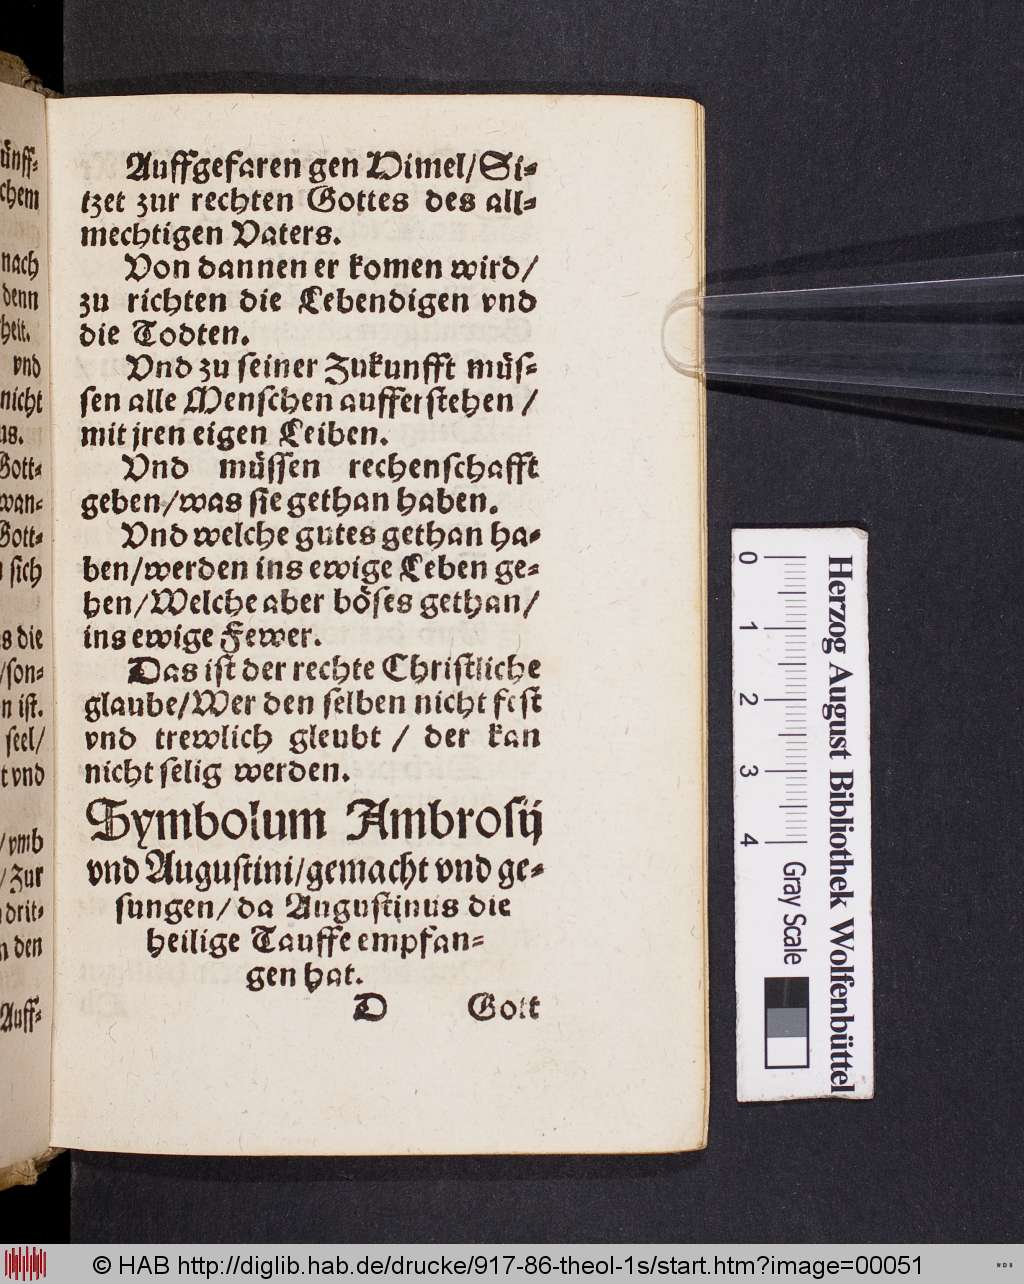 ünff⸗
chem
nach
denn
heit.
vnd
nicht
us.
Gott⸗
wan⸗
Gott⸗
sich
s die
/son⸗
n ist.
seel/
t vnd
/vmb
/Zur
drit⸗
n den
Auff⸗
Auffgefaren gen Himel/Si⸗
tzet zur rechten Gottes des all⸗
mechtigen Vaters.
Von dannen er komen wird/
zu richten die Lebendigen vnd
die Todten.
Vnd zu seiner Zukunfft müs⸗
sen alle Menschen aufferstehen /
mit jren eigen Leiben.
Vnd müssen rechenschafft
geben/was sie gethan haben.
Vnd welche gutes gethan ha⸗
ben/werden ins ewige Leben ge⸗
hen/Welche aber böses gethan/
ins ewige Fewer.
Das ist der rechte Christliche
glaube/Wer den selben nicht fest
vnd trewlich gleubt / der kan
nicht selig werden.
Symbolum Ambrosij
vnd Augustini/gemacht vnd ge⸗
sungen/da Augustinus die
heilige Tauffe empfan⸗
gen hat.
D Gott
0 1 2 3 4
Gray Scale
Herzog August Bibliothek Wolfenbüttel
© HAB http://diglib.hab.de/drucke/917-86-theol-1s/start.htm?image=00051